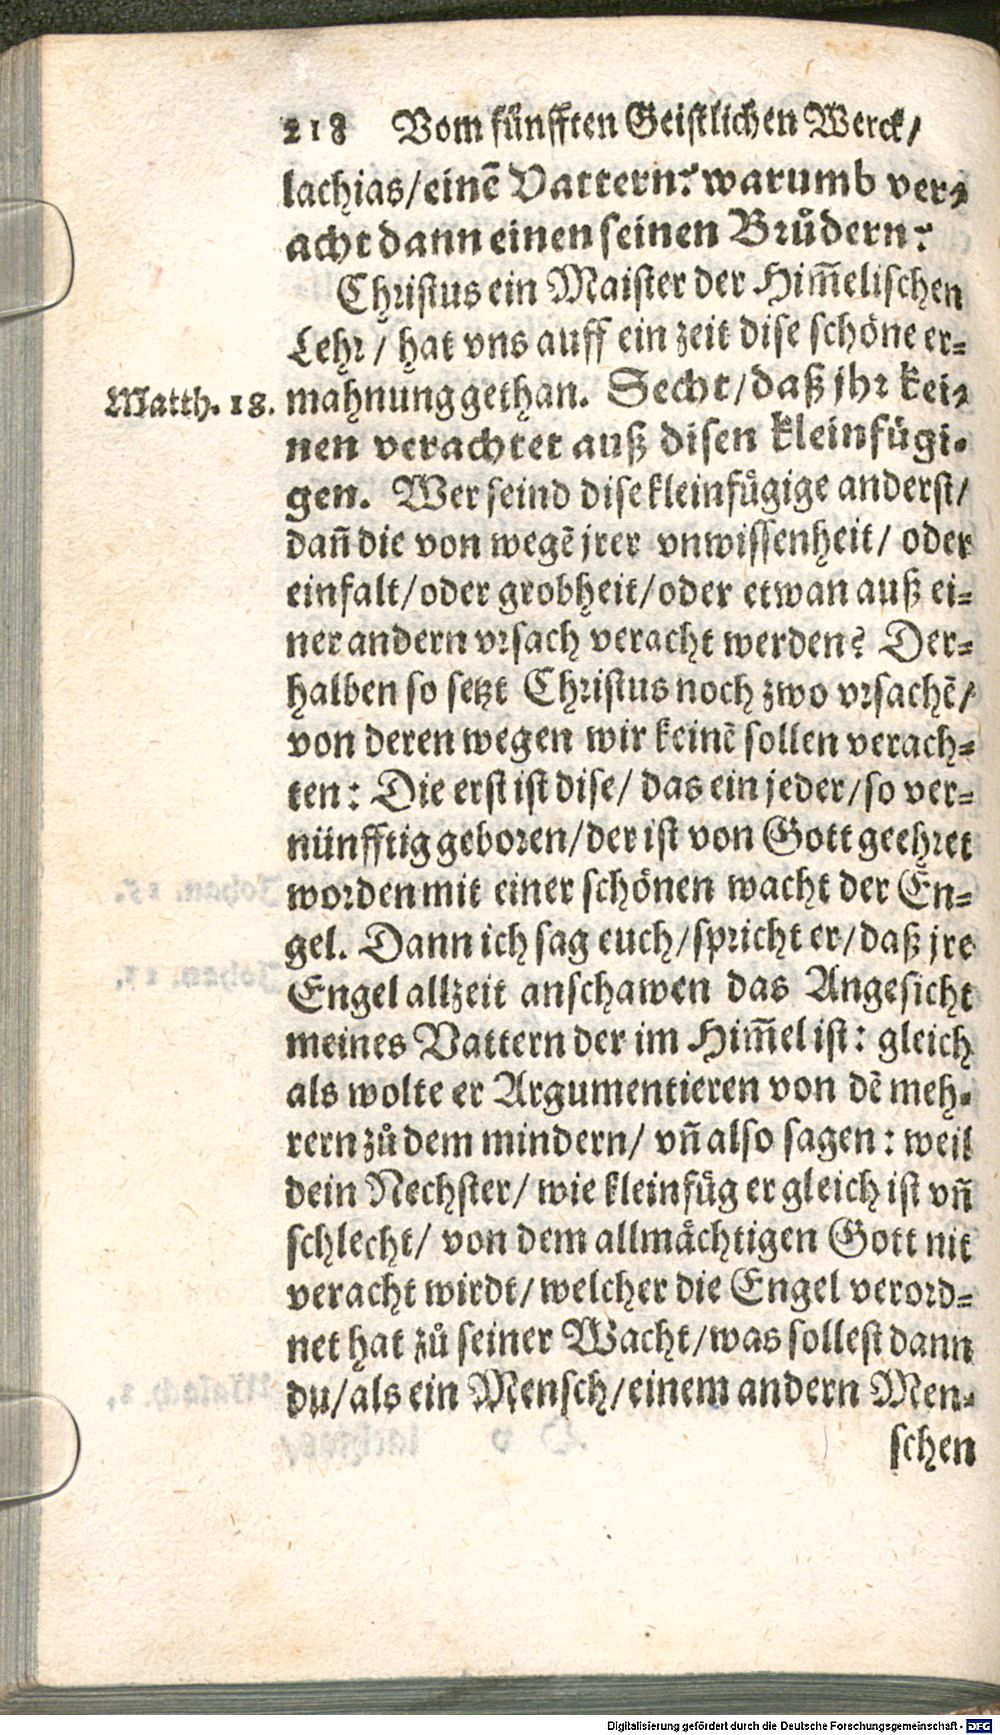 218 Vom fünfften Geistlichen Werck/
lachias/einē Vattern? warumb ver-
acht dann einen seinen Brůdern?
Christus ein Maister der Him̄elischen
Lehr/ hat vns auff ein zeit dise schöne er-
Matth. 18. mahnung gethan. Secht/daß jhr kei-
nen verachtet auß disen kleinfügi-
gen. Wer seind dise kleinfůgige anderst/
dañ die von wegē jrer vnwissenheit/ oder
einfalt/oder grobheit/oder etwan auß ei-
ner andern vrsach veracht werden? Der-
halben so setzt Christus noch zwo vrsachē/
von deren wegen wir keinē sollen verach-
ten: Die erst ist dise/ das ein jeder/so ver-
nünfftig geboren/der ist von Gott geehret
worden mit einer schönen wacht der En-
gel. Dann ich sag euch/spricht er/daß jre
Engel allzeit anschawen das Angesicht
meines Vattern der im Him̄el ist: gleich
als wolte er Argumentieren von dē meh-
rern zů dem mindern/ vñ also sagen: weil
dein Nechster/ wie kleinfůg er gleich ist vñ
schlecht/ von dem allmächtigen Gott nit
veracht wirdt/welcher die Engel verord-
net hat zů seiner Wacht/was sollest dann
du/als ein Mensch/einem andern Men-
schen
Digitalisierung gefördert durch die Deutsche Forschungsgemeinschaft - DFG